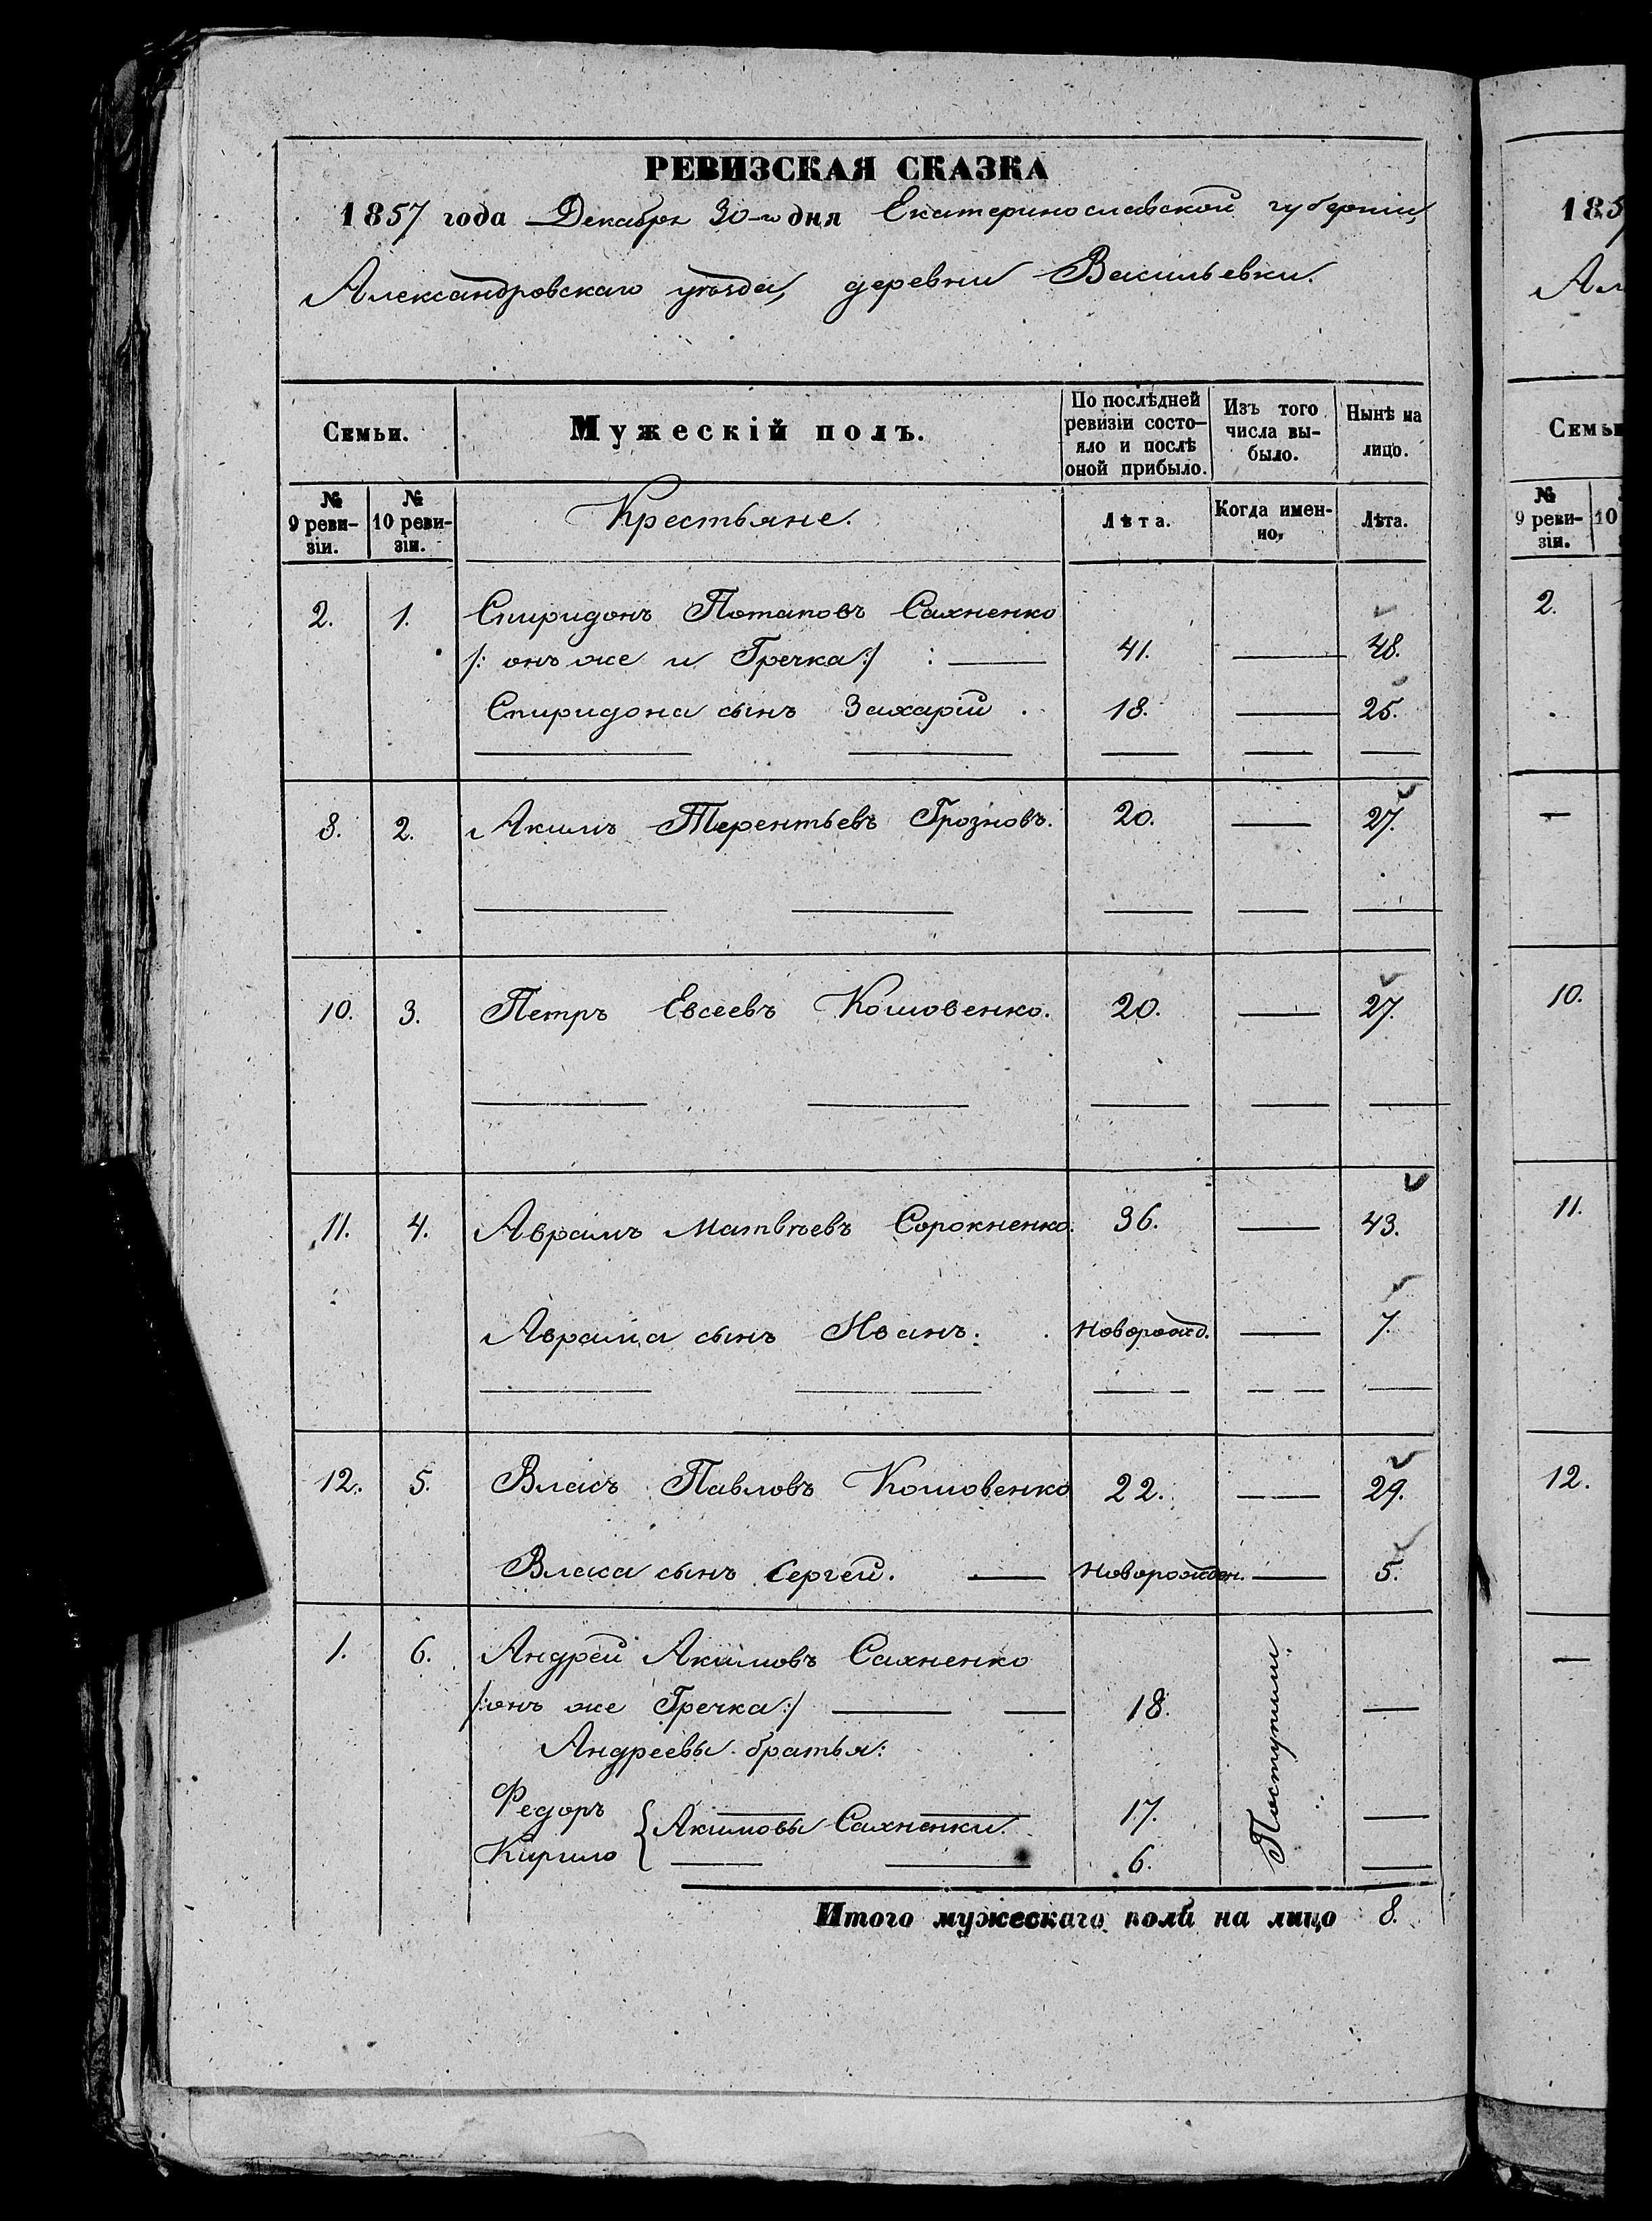 РЕВИЗСКАЯ СКАЗКА
1857 года Декабря 30-го дня Екатеринославской губерніи,
Александровскаго уѣзда, деревни Васильевки.
Семьи. Мужескій полъ. По послѣдней ревизіи состо-яло и послѣ оной прибыло. Изъ того числа вы-было. Нынѣ на лицо.
№ 9 реви-зіи. № 10 реви-зіи. Крестьяне. Лѣта. Когда имен-но, Лѣта.
2. 1. Спиридонъ Потаповъ Сахненко
/: онъ же и Гречка :/ 41. — 48.
Спиридона сынъ Захарій 18. — 25.
8. 2. Акимъ Терентьевъ Грозновъ. 20. — 27.
10. 3. Петръ Евсеевъ Кошовенко. 20. — 27.
11. 4. Аврамъ Матвѣевъ Сорокненко. 36. — 43.
Аврама сынъ Иванъ. Новорожд. — 7.
12. 5. Власъ Павловъ Кошовенко 22. — 29.
Власа сынъ Сергей. — Новорожден. — 5.
1. 6. Андрей Акимовъ Сахненко
/: онъ же Гречка :/ — 18. —
Андреевы братья:
Федоръ 17. —
{ Акимовы Сахненки.
Кирило 6. —
Поступили
Итого мужескаго пола на лицо 8.
185
Ал
Семьи
№ 9 реви-зіи. 10
2.
—
10.
11.
12.
—